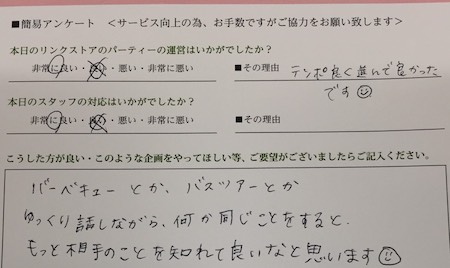 ■簡易アンケート <サービス向上の為、お手数ですがご協力をお願い致します>
本日のリンクストアのパーティーの運営はいかがでしたか？
非常に良い・良い・悪い・非常に悪い ■その理由 テンポ良く進んで良かった
です
本日のスタッフの対応はいかがでしたか？
非常に良い・良い・悪い・非常に悪い ■その理由
こうした方が良い・このような企画をやってほしい等、ご要望がございましたらご記入ください。
バーベキューとか、バスツアーとか
ゆっくり話しながら、何か同じことをすると、
もっと相手のことを知れて良いなと思います